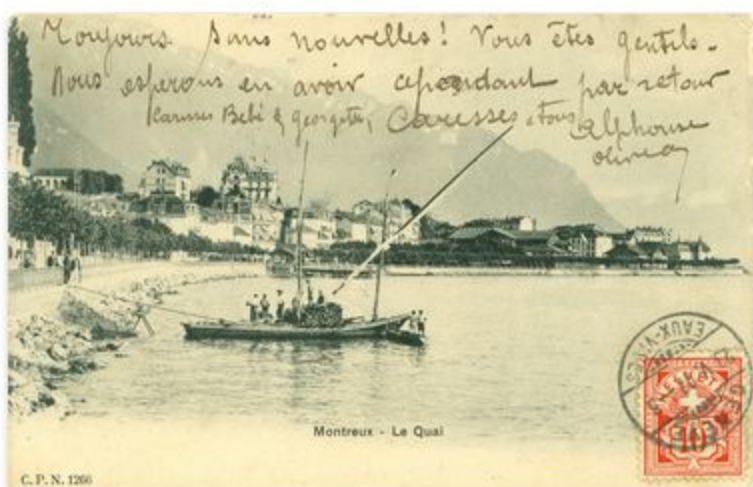 Toujours sans nouvelles! Vous êtes gentils.
Nous esperons en avoir cependant par retour
Bebé & Georgette, Caresses a tous
Alphonse
Montreux - Le Quai
GENÈVE
EAUX-VIVES
10
C. P. N. 1266